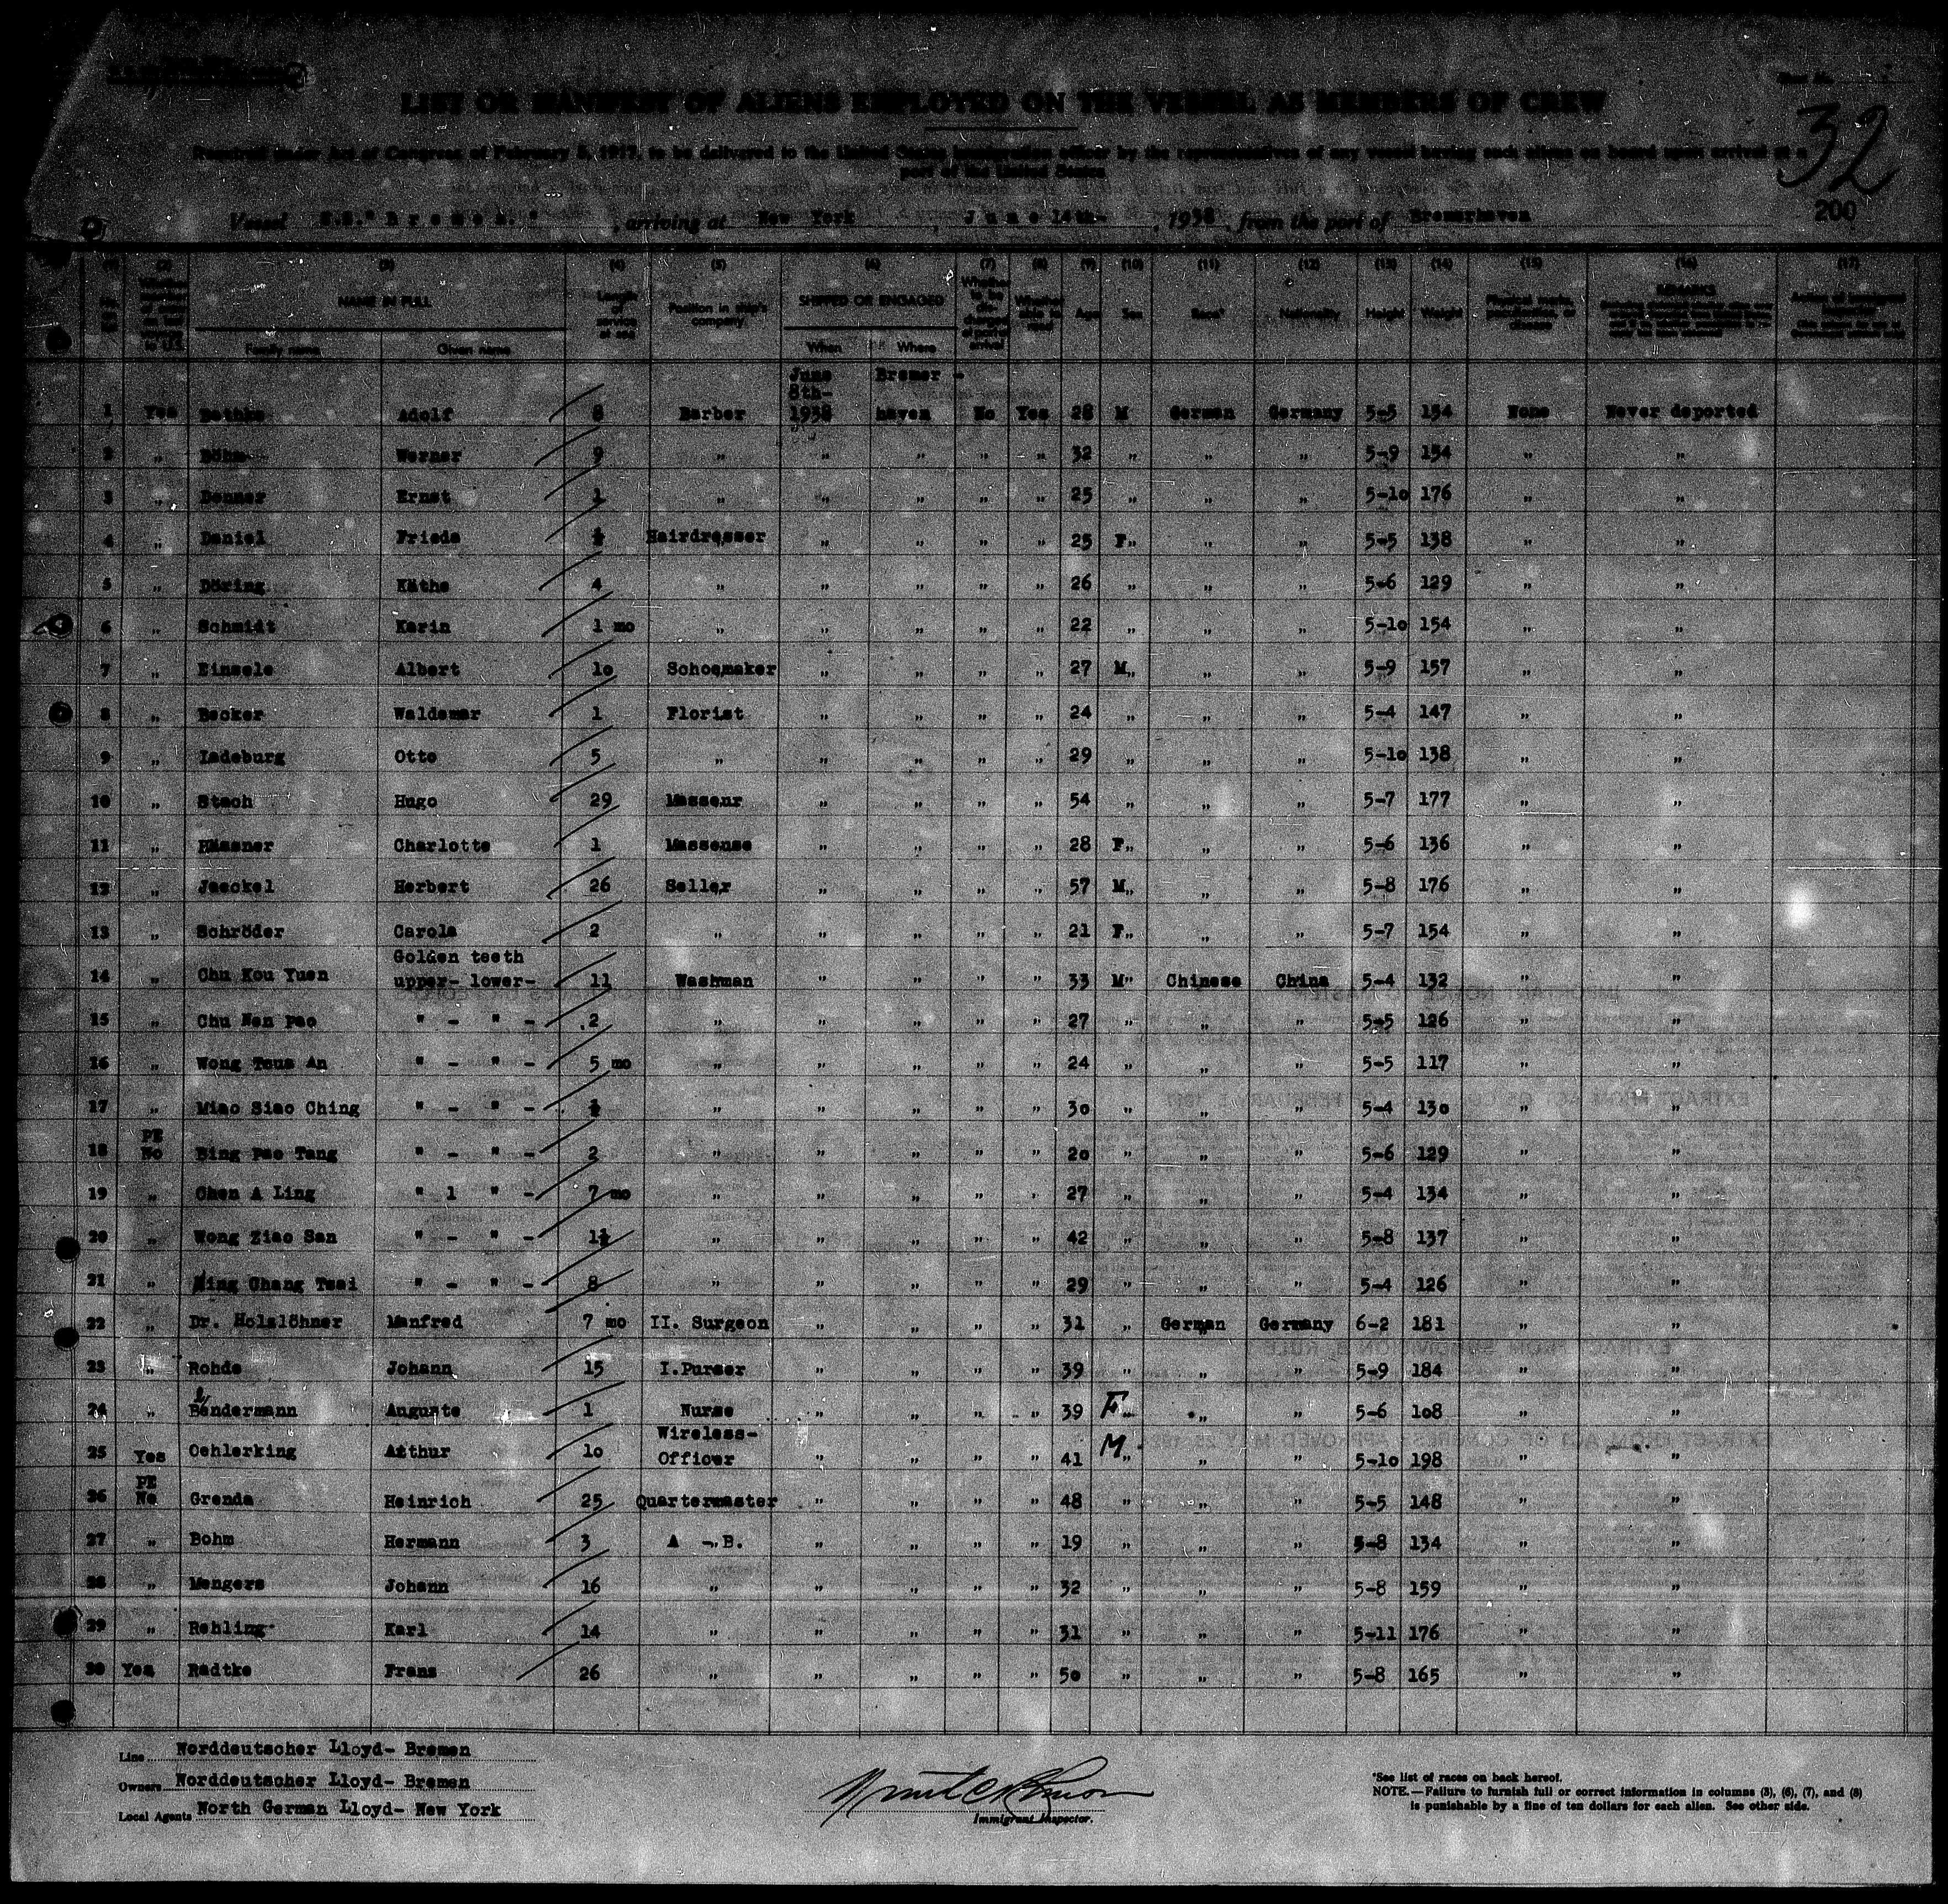 LIST OR MANIFEST OF ALIENS EMPLOYED ON THE VESSEL AS MEMBERS OF CREW
32
Required under Act of Congress of February 5, 1917, to be delivered to the United States immigration officer by the representatives of any vessel having such aliens on board upon arrival at a
port of the United States
200
Vessel S.S." B r e m e n. " , arriving at New York , J u n e 14th- , 1938 , from the port of Bremerhaven
(1) (2) (3) (4) (5) (6) (7) (8) (9) (10) (11) (12) (13) (14) (15) (16) (17)
NAME IN FULL Length of service at sea Position in ship's company SHIPPED OR ENGAGED Whether to be discharged at port of arrival Whether able to read Age Sex Race* Nationality Height Weight Physical marks, peculiarities, or disease REMARKS
Family name Given name When Where
June Bremer -
8th-
1 Yes Bethke Adolf 8 Barber 1938 haven No Yes 28 M German Germany 5-5 154 None Never deported
2 " Böhm Werner 9 " " " " " 32 " " " 5-9 154 " "
3 " Benner Ernst 1 " " " " " 25 " " " 5-10 176 " "
4 " Daniel Frieda ½ Hairdresser " " " " 25 F" " " 5-5 138 " "
5 " Döring Käthe 4 " " " " " 26 " " " 5-6 129 " "
6 " Schmidt Karin 1 mo " " " " " 22 " " " 5-10 154 " "
7 " Einsele Albert 10 Schoemaker " " " " 27 M" " " 5-9 157 " "
8 " Becker Waldemar 1 Florist " " " " 24 " " " 5-4 147 " "
9 " Ladeburg Otto 5 " " " " " 29 " " " 5-10 138 " "
10 " Stach Hugo 29 Massenr " " " " 54 " " " 5-7 177 " "
11 " Hässner Charlotte 1 Massense " " " " 28 F" " " 5-6 136 " "
12 " Jaeckel Herbert 26 Seller " " " " 57 M" " " 5-8 176 " "
13 " Schröder Carola 2 " " " " " 21 F" " " 5-7 154 " "
Golden teeth
14 " Chu Kou Yuen upper- lower- 11 Washman " " " " 33 M" Chinese China 5-4 132 " "
15 " Chu Nen Pao " - " - 2 " " " " " 27 " " " 5-5 126 " "
16 " Wong Tsus An " - " - 5 mo " " " " " 24 " " " 5-5 117 " "
17 " Miao Siao Ching " - " - ½ " " " " " 30 " " " 5-4 130 " "
PE
18 No Bing Pao Tang " - " - 2 " " " " " 20 " " " 5-6 129 " "
19 " Chen A Ling " 1 " - 7 mo " " " " " 27 " " " 5-4 134 " "
20 " Wong Ziao San " - " - 1½ " " " " " 42 " " " 5-8 137 " "
21 " Ning Chang Tsai " - " - 8 " " " " " 29 " " " 5-4 126 " "
22 " Dr. Holzlöhner Manfred 7 mo II. Surgeon " " " " 31 " German Germany 6-2 181 " "
23 " Rohde Johann 15 I.Purser " " " " 39 " " " 5-9 184 " "
24 " Bendermann Auguste 1 Nurse " " " " 39 F " " 5-6 108 " "
Wireless-
25 Yes Oehlerking Arthur 10 Officer " " " " 41 M " " 5-10 198 " "
PE
26 No Grenda Heinrich 25 Quartermaster " " " " 48 " " " 5-5 148 " "
27 " Bohm Hermann 3 A -.B. " " " " 19 " " " 5-8 134 " "
28 " Mengers Johann 16 " " " " " 32 " " " 5-8 159 " "
29 " Rehling Karl 14 " " " " " 31 " " " 5-11 176 " "
30 Yes Radtke Franz 26 " " " " " 50 " " " 5-8 165 " "
Line Norddeutscher Lloyd- Bremen
Owners Norddeutscher Lloyd- Bremen
Local Agents North German Lloyd- New York
Immigrant Inspector.
*See list of races on back hereof.
NOTE.—Failure to furnish full or correct information in columns (3), (6), (7), and (8)
is punishable by a fine of ten dollars for each alien. See other side.